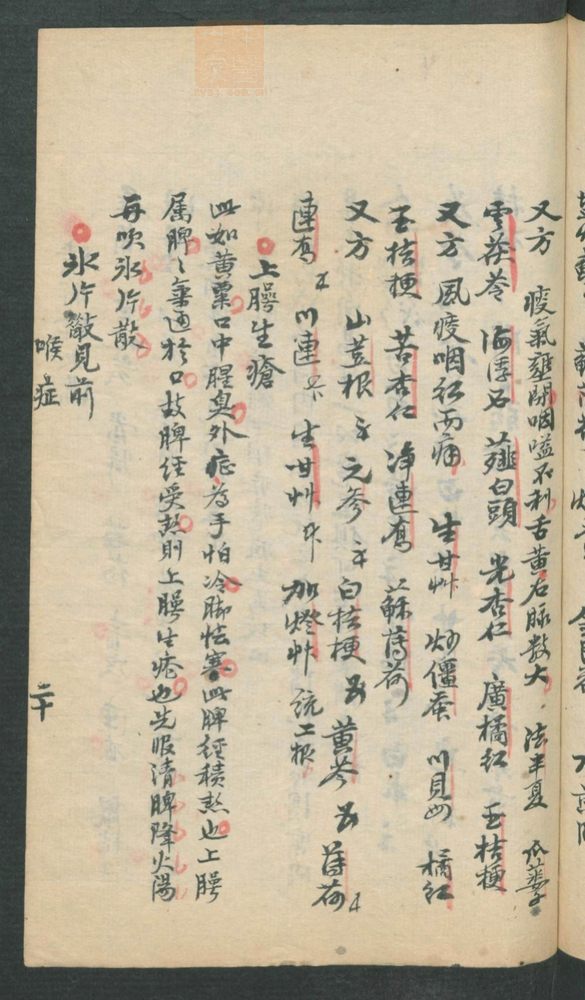 又方 痰氣壅閉咽嗌不利舌黃右脈數大 法半夏 瓜蔞
雲茯苓 海浮石 薤白頭 光杏仁 廣橘紅 玉桔梗
又方 風痰咽紅而痛 生甘艸 炒僵蚕 川貝母 橘紅
玉桔梗 苦杏仁 淨連喬 蘇薄荷
又方 山荳根 元参 白桔梗 黃芩 薄荷
連喬 川連 生甘艸 加燈艸 統工根
上腭生瘡
此如黃粟口中腥臭外症為手怕冷脚怯寒此脾經積熱也上腭
属脾之竅通於口故脾經受熱則上腭生瘡也先服清脾降火湯
再吹氷片散
氷片散見前
喉症
二十